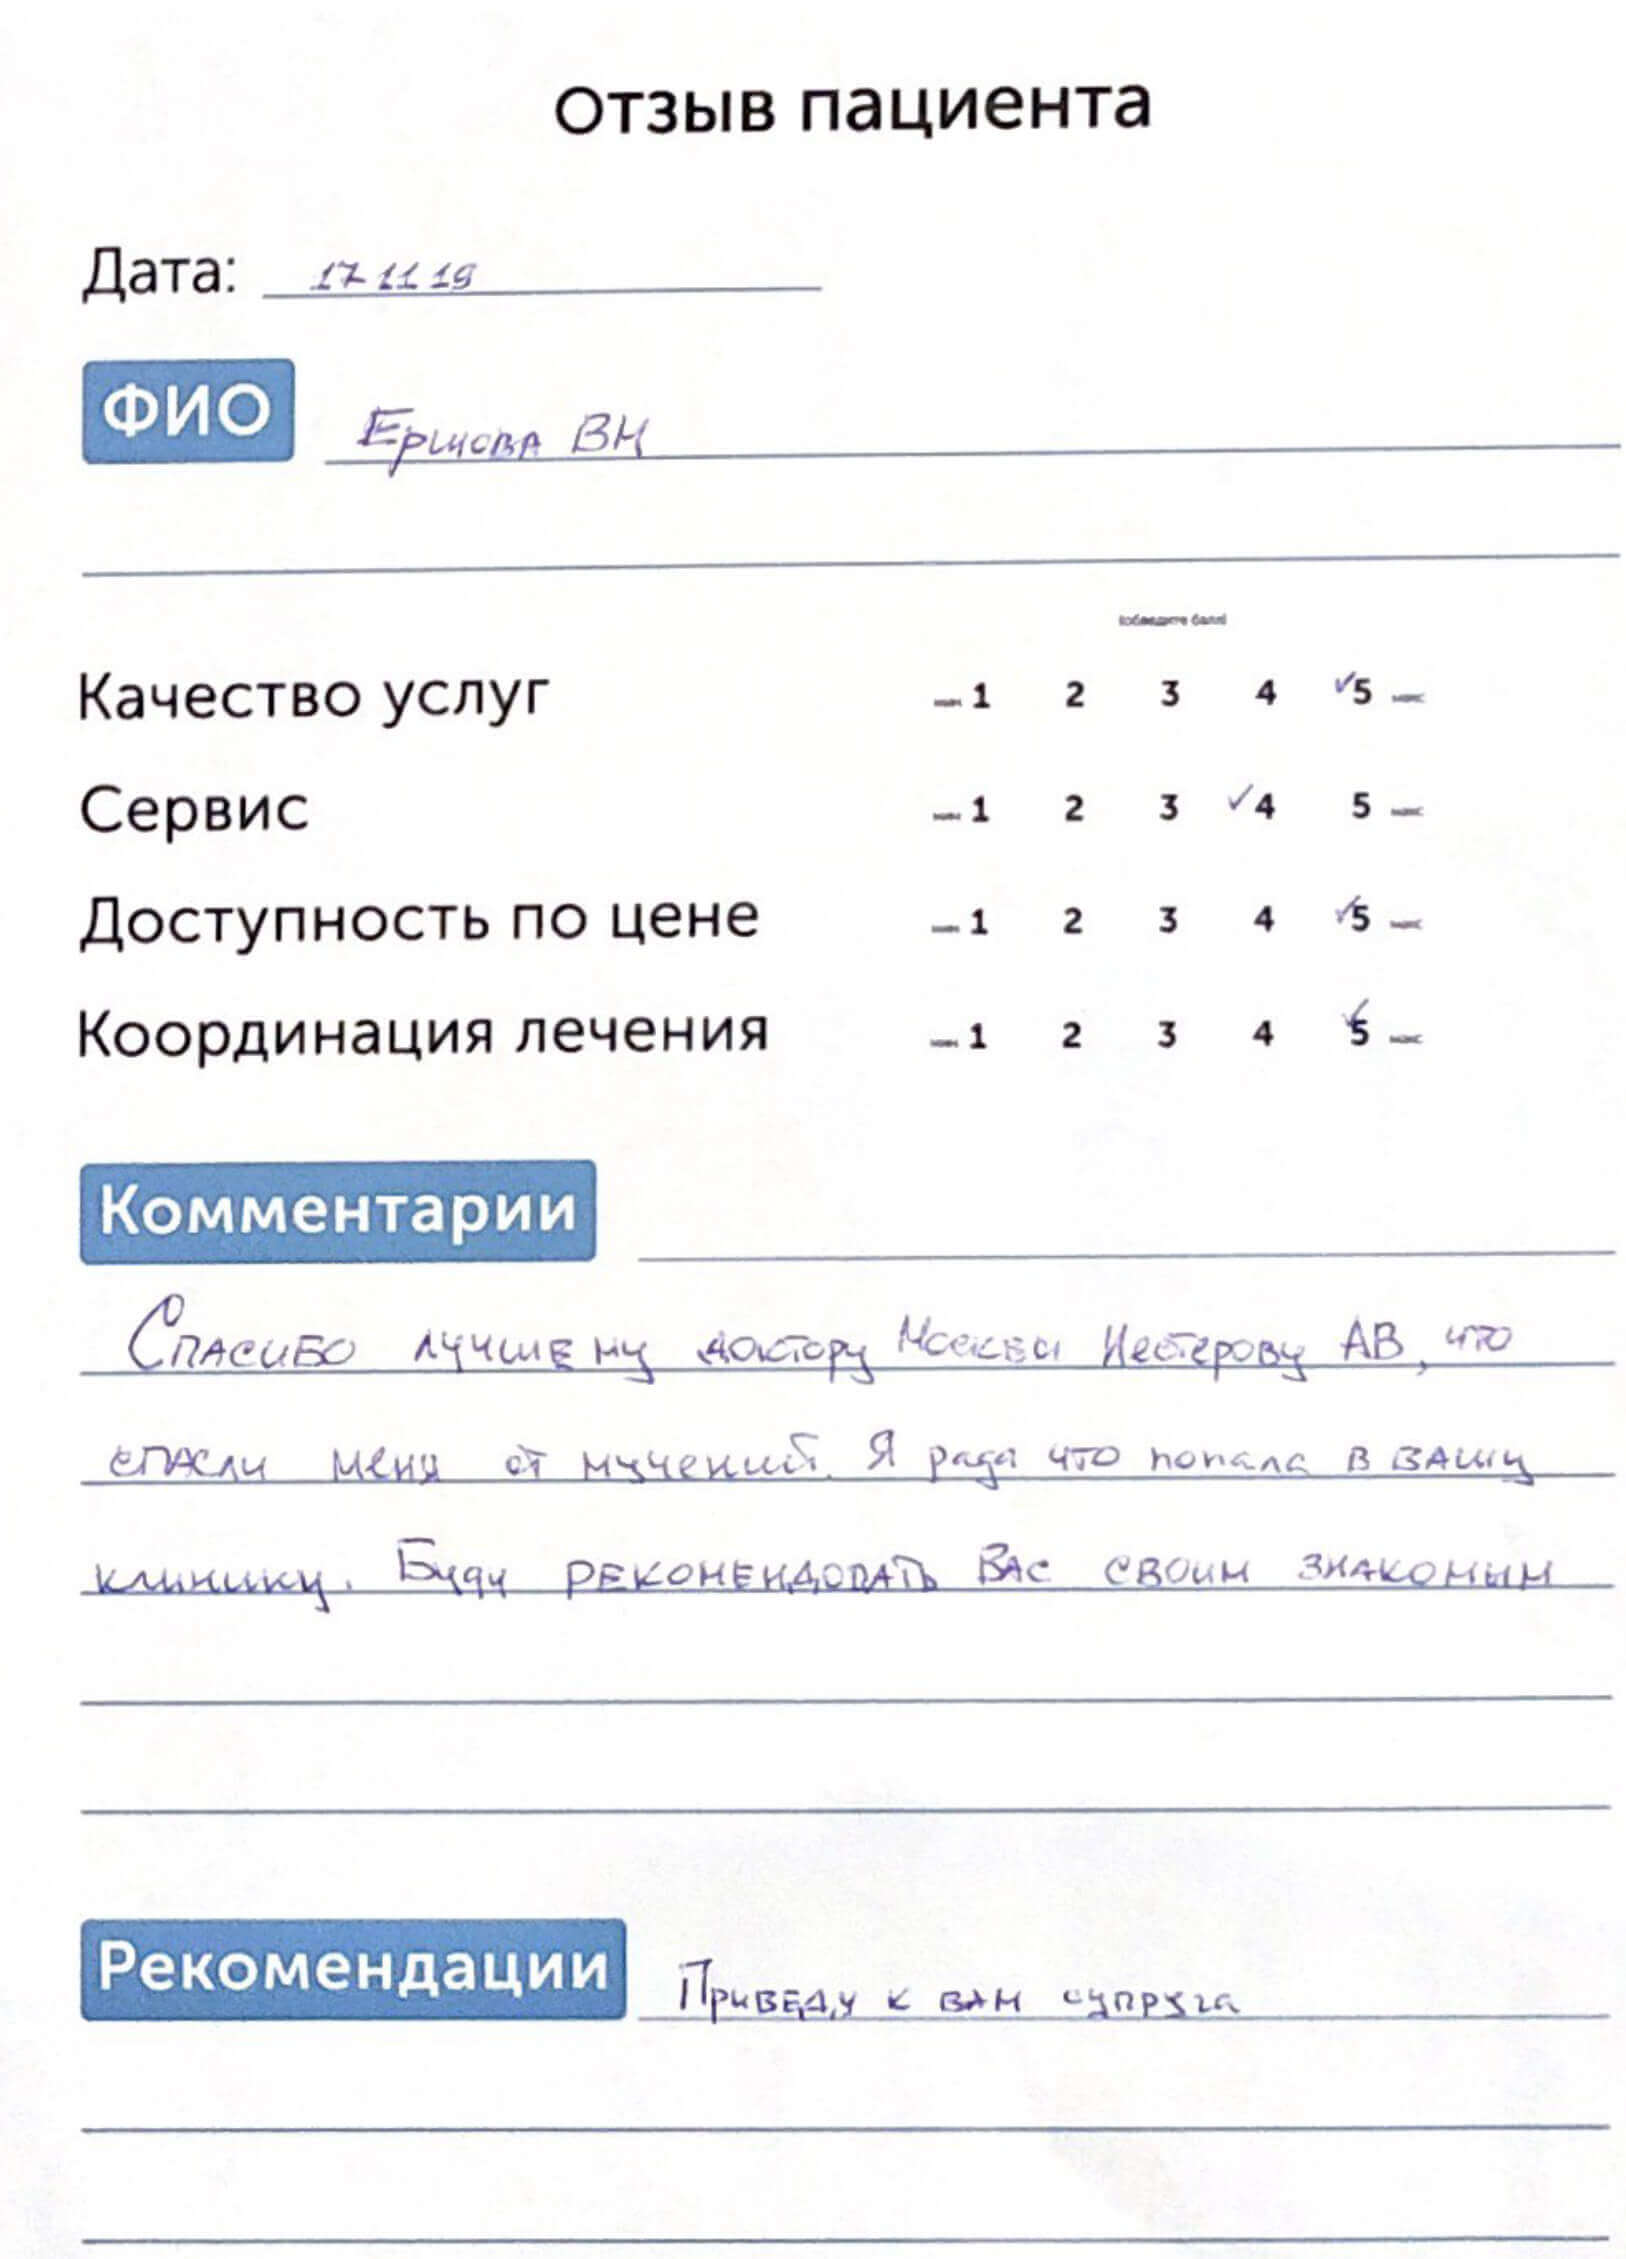 Отзыв пациента
Дата: 17 11 19
ФИО Ершова ВН
(обведите балл)
Качество услуг мин 1 2 3 4 ✓5 макс
Сервис мин 1 2 3 ✓4 5 макс
Доступность по цене мин 1 2 3 4 ✓5 макс
Координация лечения мин 1 2 3 4 ✓5 макс
Комментарии
Спасибо лучшему доктору Москвы Нестерову АВ, что
спасли меня от мучений. Я рада что попала в вашу
клинику. Буду рекомендовать Вас своим знакомым
Рекомендации Приведу к вам супруга